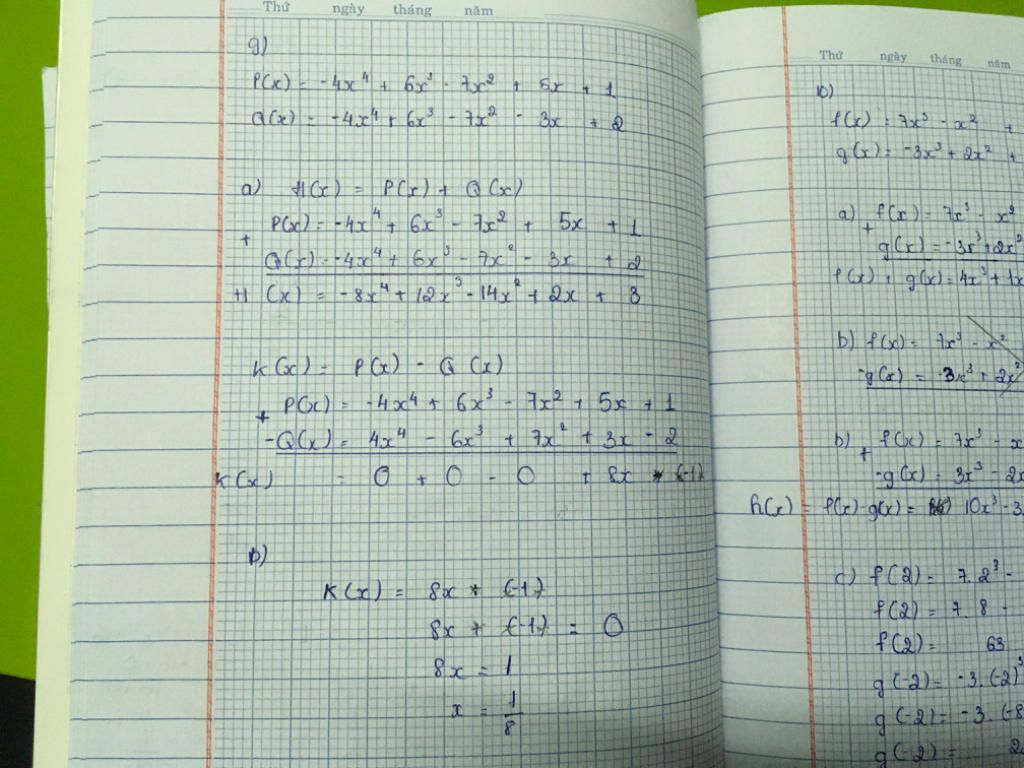 Thứ ngày tháng năm
9)
P(x) = -4x⁴ + 6x³ - 7x² + 5x + 1
Q(x) = -4x⁴ + 6x³ - 7x² - 3x + 2
a) H(x) = P(x) + Q(x)
P(x) = -4x⁴ + 6x³ - 7x² + 5x + 1
+
Q(x) = -4x⁴ + 6x³ - 7x² - 3x + 2
H (x) = -8x⁴ + 12x³ - 14x² + 2x + 3
K(x) = P(x) - Q(x)
+ P(x) = -4x⁴ + 6x³ - 7x² + 5x + 1
-Q(x) = 4x⁴ - 6x³ + 7x² + 3x - 2
K(x) = 0 + 0 - 0 + 8x + (-1)
b)
K(x) = 8x + (-1)
8x + (-1) = 0
8x = 1
x = 1/8
Thứ ngày tháng năm
10)
f(x) = 7x³ - x² +
g(x) = -3x³ + 2x² +
a) f(x) = 7x³ - x²
+
g(x) = -3x³ + 2x²
f(x) + g(x) = 4x³ + 1x
b) f(x) = 7x³ - x²
-g(x) = -3x³ + 2x²
b) f(x) = 7x³ - x
+
-g(x) = 3x³ - 2x
h(x) = f(x) - g(x) = 10x³ - 3
c) f(2) = 7.2³ -
f(2) = 7.8 -
f(2) = 63
g(-2) = -3.(-2)³
g(-2) = -3.(-8
g(-2) = 2